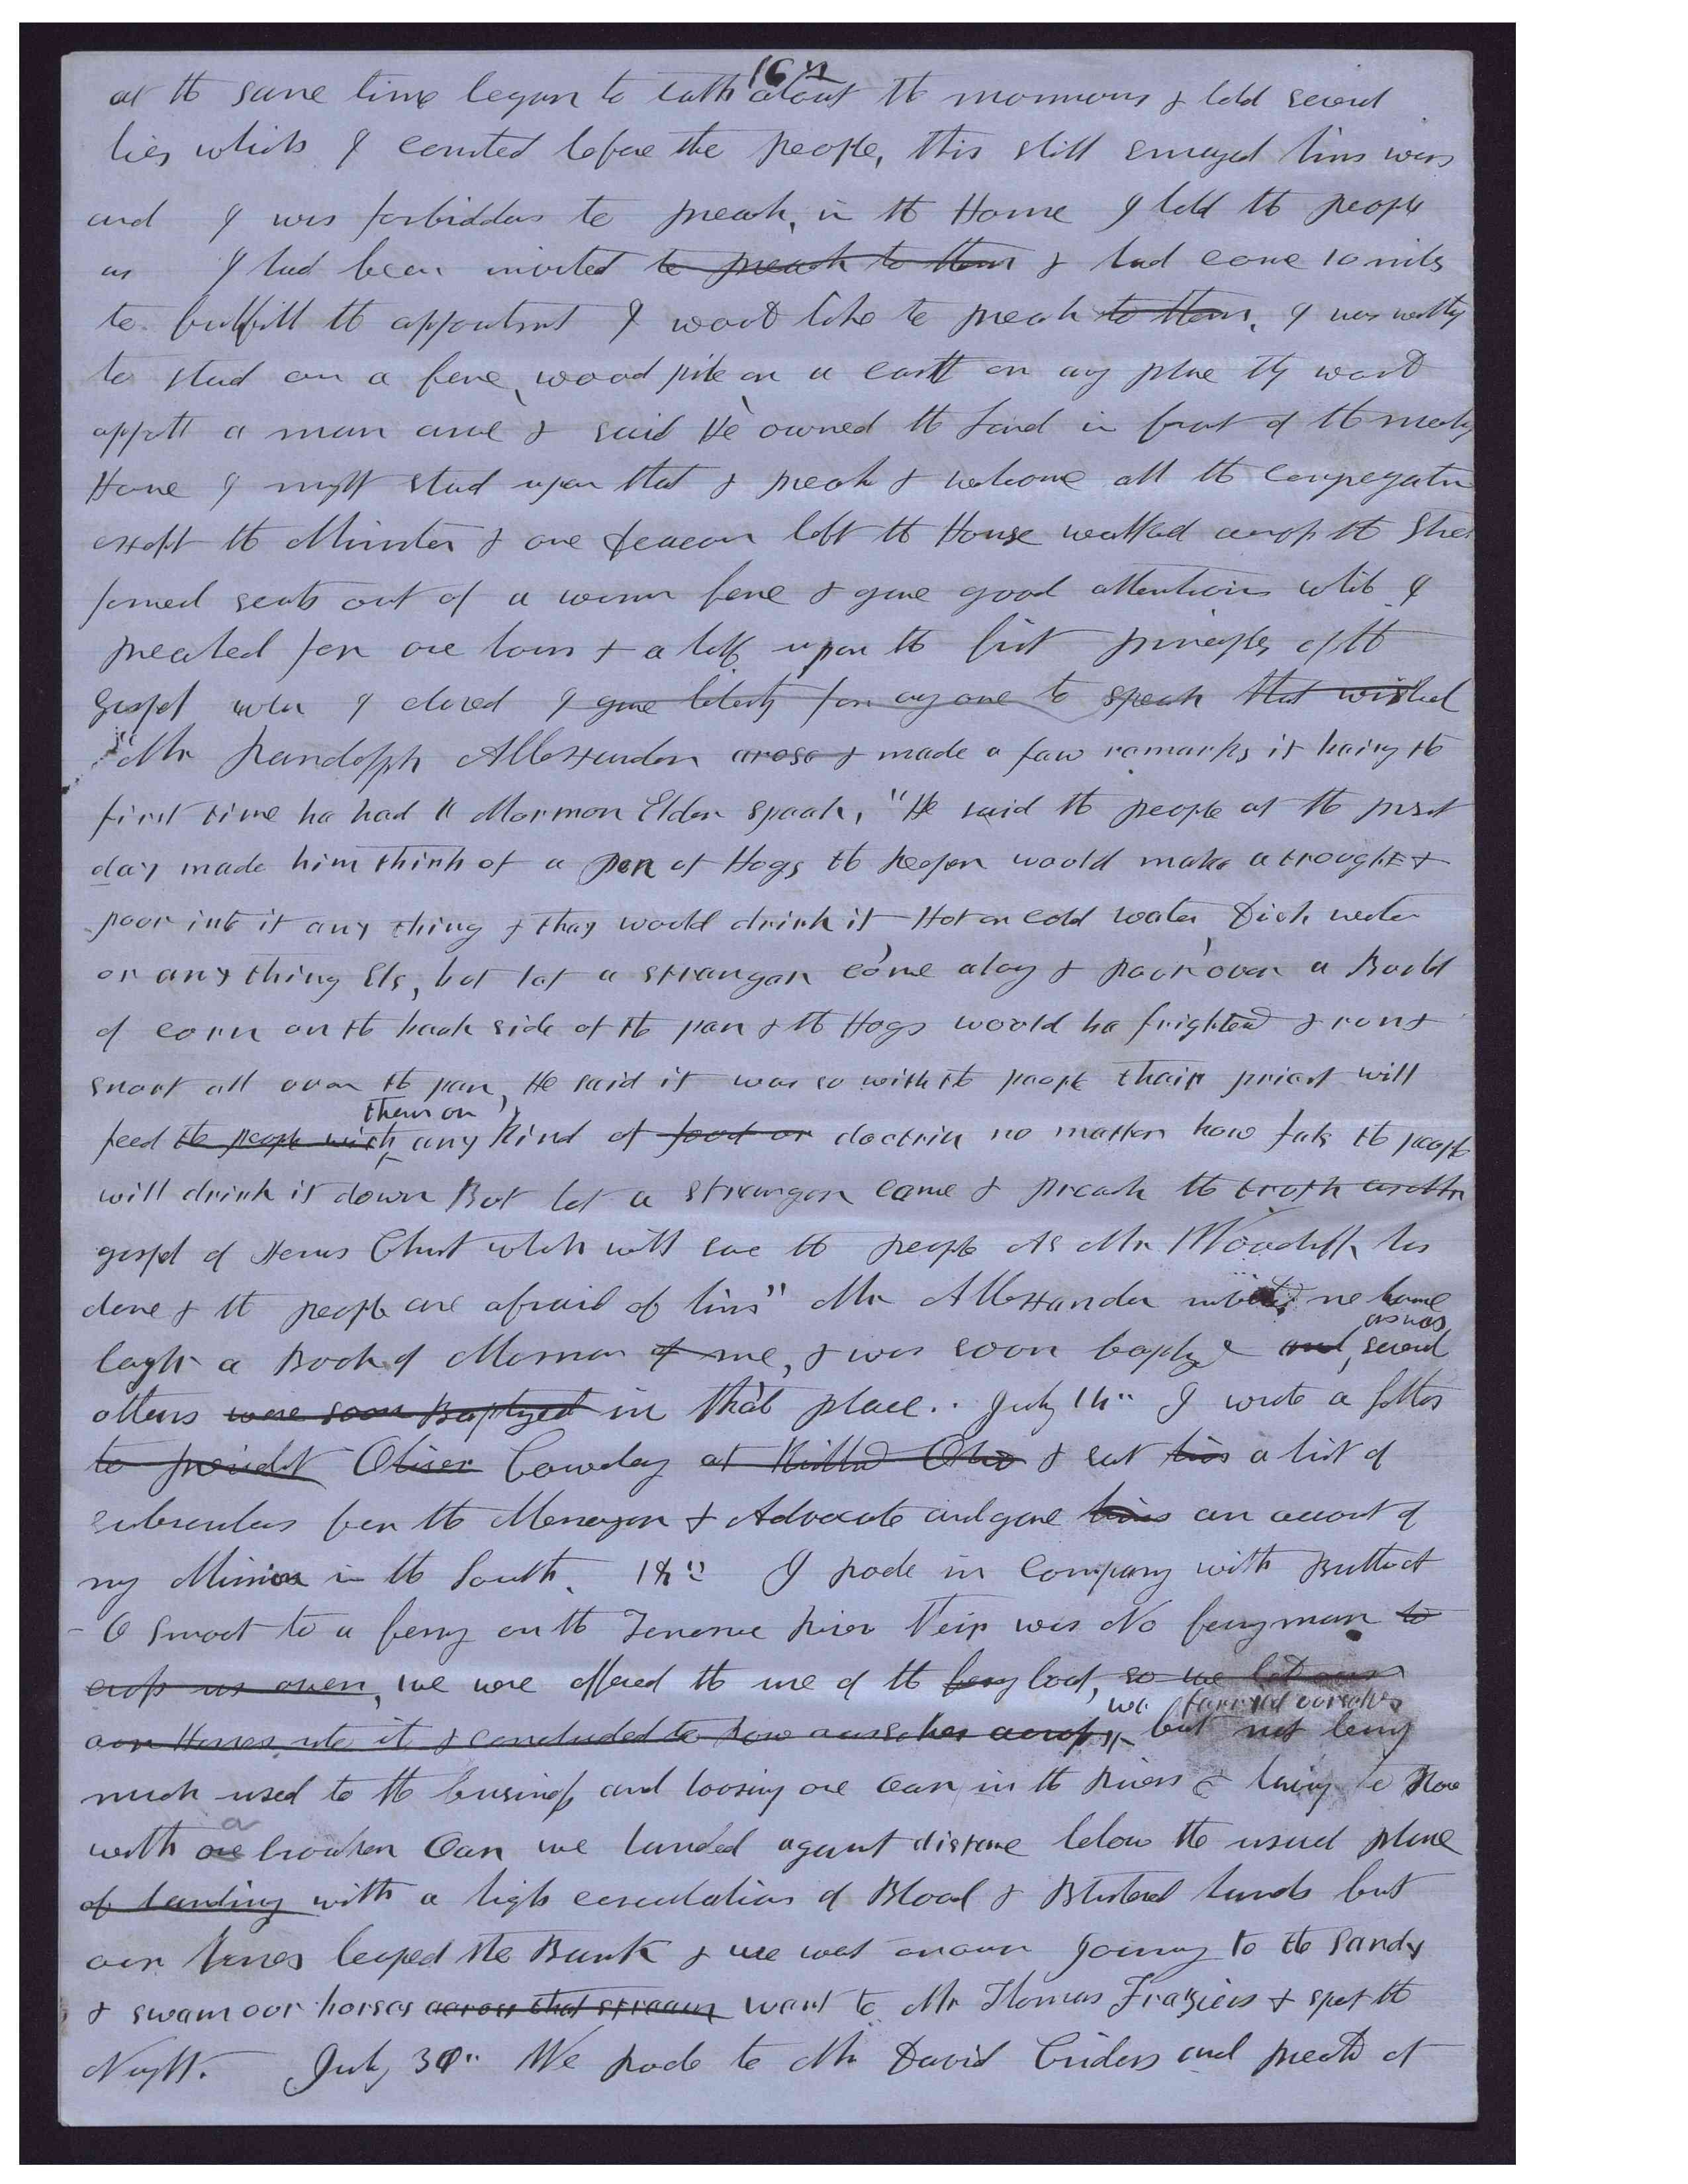 16"
at the same time began to talk about the mormons & told severl
lies which I corrected before the people, this still enraged him wors
and I was forbidden to preach, in the House I told the people
as I had been invited to preach to them & had come 10 miles
to fullfill the appointmt I would like to preach to them, I was willing
to stand on a fence, wood pile or a cart or any place they would
appoint a man arose & said He owned the Land in front of the meeting
House I might stand upon that & preach & welcome all the congregation
except the Minister & one Deacon left the House walked across the Street
formed seats out of a worm fence & gave good attention while I
preached for one hour & a half upon the first principles of the
gospel when I closed I gave liberty for any one to speak that wished
"Mr Randolph Allexander arose & made a few remarks it being the
first time he had a Mormon Elder speak, "He said the people at the presnt
day made him think of a pen of Hogs the keeper would make a trought &
poor into it any thing & they would drink it Hot or cold water Dish water
or any thing Els, but let a stranger come along & poor over a Baskt
of corn on the back side of the pen & the Hogs would be frightend & run &
snort all over the pen, He said it was so with the people their priest will
them on
feed the people with any kind of food or doctrin no matter how fals the people
will drink it down But let a stranger come & preach the truth
gospel of Jesus Christ which will save the people As Mr Woodruff has
done & the people are afraid of him" Mr Allexander invited me home
as was
bought a Book of Mormon of me, & was soon baptized and, severl
others were soon Baptized in that place. July 14" I wrote a letter
to presidet Oliver Cowdery at Kirtland Ohio & sent him a list of
subscribers for the Messenger & Advocate and gave him an account of
my Mission in the South. 18" I rode in Company with Brother
O Smoot to a ferry on the Tenessee River Their was No ferryman to
cross us over, we were offered the use of the ferry boat, so we led our
we ferried ourselves
our Horses into it & concluded to row ourselves across but not being
much used to the business and loosing one oar in the River & having to Row
a
with one broaken Oar we landed a great distance below the usual place
of landing with a high circulation of Blood & Blistered hands but
our horses leaped the Bank & we went on our Journey to the Sandy
& swam our horses across that stream want to Mr Thomas Fraziers & spet the
Night. July 30" We rode to Mr David Criders and preachd at